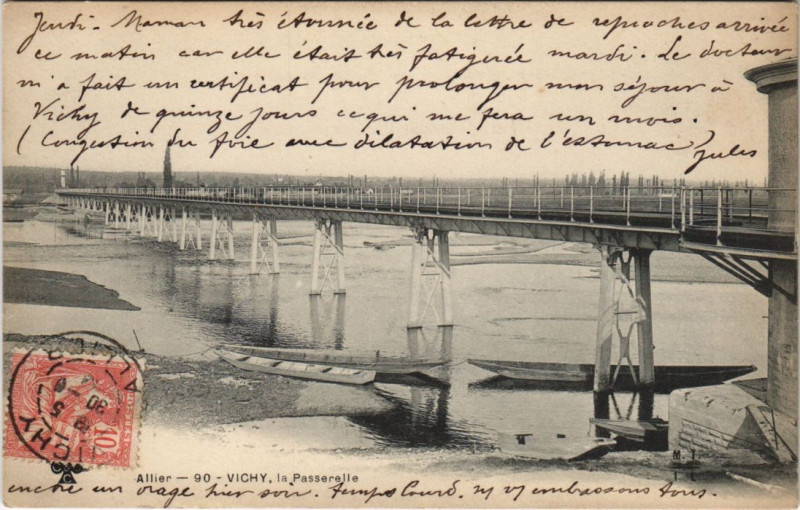 Jeudi - Maman très étonnée de la lettre de reproches arrivée
ce matin car elle était très fatiguée mardi. Le docteur
m'a fait un certificat pour prolonger mon séjour à
Vichy de quinze jours ce qui me fera un mois.
(Congestion du foie avec dilatation de l'estomac) Jules
10
VICHY
ALLIER
Allier — 90 - VICHY, la Passerelle
encore un orage hier soir. temps lourd. embrassons tous.